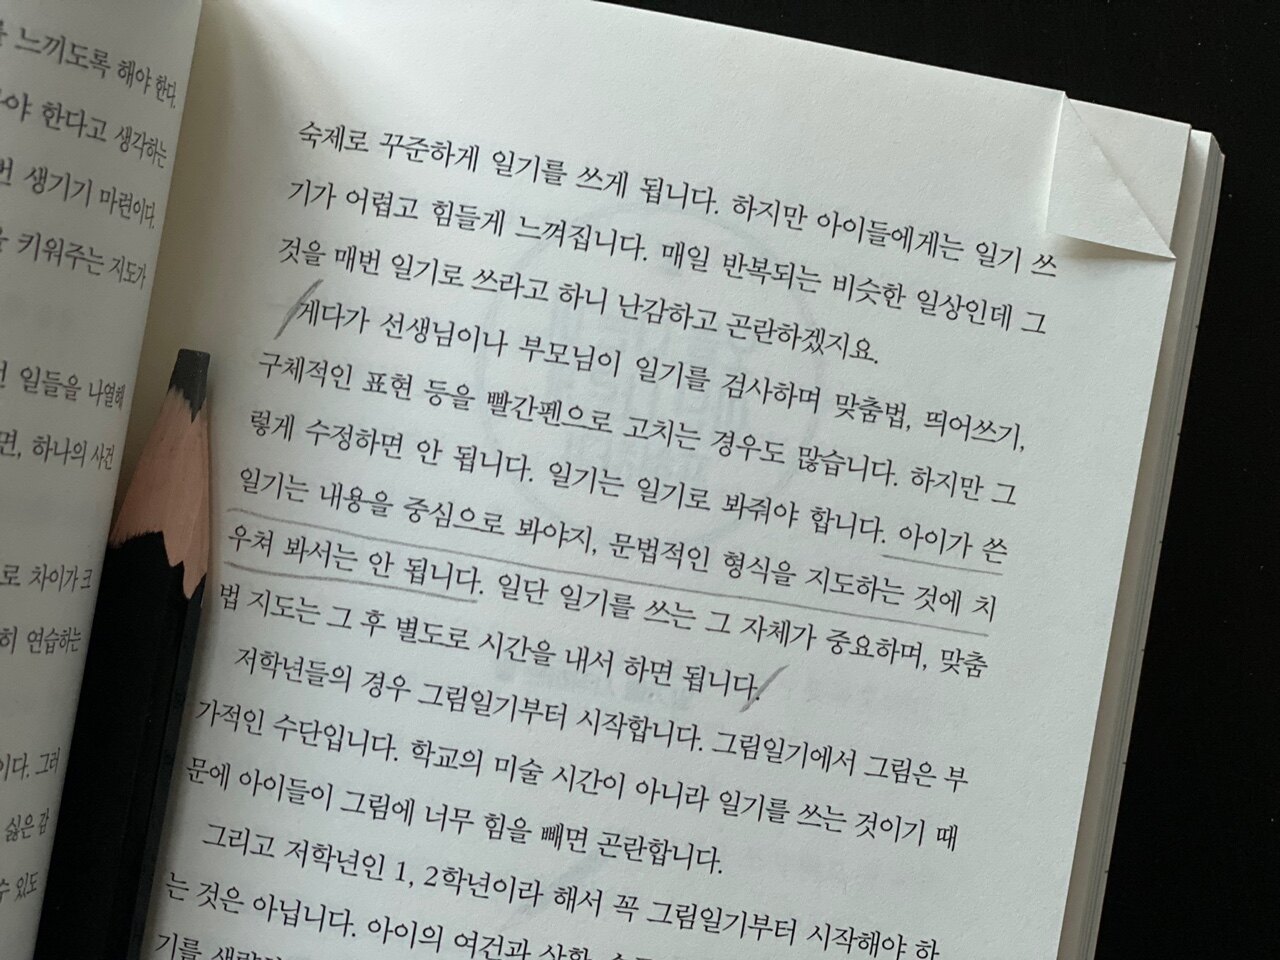 느끼도록 해야 한다.
야 한다고 생각하는
번 생기기 마련이다.
키워주는 지도가
일들을 나열해
면, 하나의 사건
로 차이가 크
히 연습하는
이다. 그러
싫은 감
수 있도
숙제로 꾸준하게 일기를 쓰게 됩니다. 하지만 아이들에게는 일기 쓰
기가 어렵고 힘들게 느껴집니다. 매일 반복되는 비슷한 일상인데 그
것을 매번 일기로 쓰라고 하니 난감하고 곤란하겠지요.
게다가 선생님이나 부모님이 일기를 검사하며 맞춤법, 띄어쓰기,
구체적인 표현 등을 빨간펜으로 고치는 경우도 많습니다. 하지만 그
렇게 수정하면 안 됩니다. 일기는 일기로 봐줘야 합니다. 아이가 쓴
일기는 내용을 중심으로 봐야지, 문법적인 형식을 지도하는 것에 치
우쳐 봐서는 안 됩니다. 일단 일기를 쓰는 그 자체가 중요하며, 맞춤
법 지도는 그 후 별도로 시간을 내서 하면 됩니다.
저학년들의 경우 그림일기부터 시작합니다. 그림일기에서 그림은 부
가적인 수단입니다. 학교의 미술 시간이 아니라 일기를 쓰는 것이기 때
문에 아이들이 그림에 너무 힘을 빼면 곤란합니다.
그리고 저학년인 1, 2학년이라 해서 꼭 그림일기부터 시작해야 하
는 것은 아닙니다. 아이의 여건과
기를